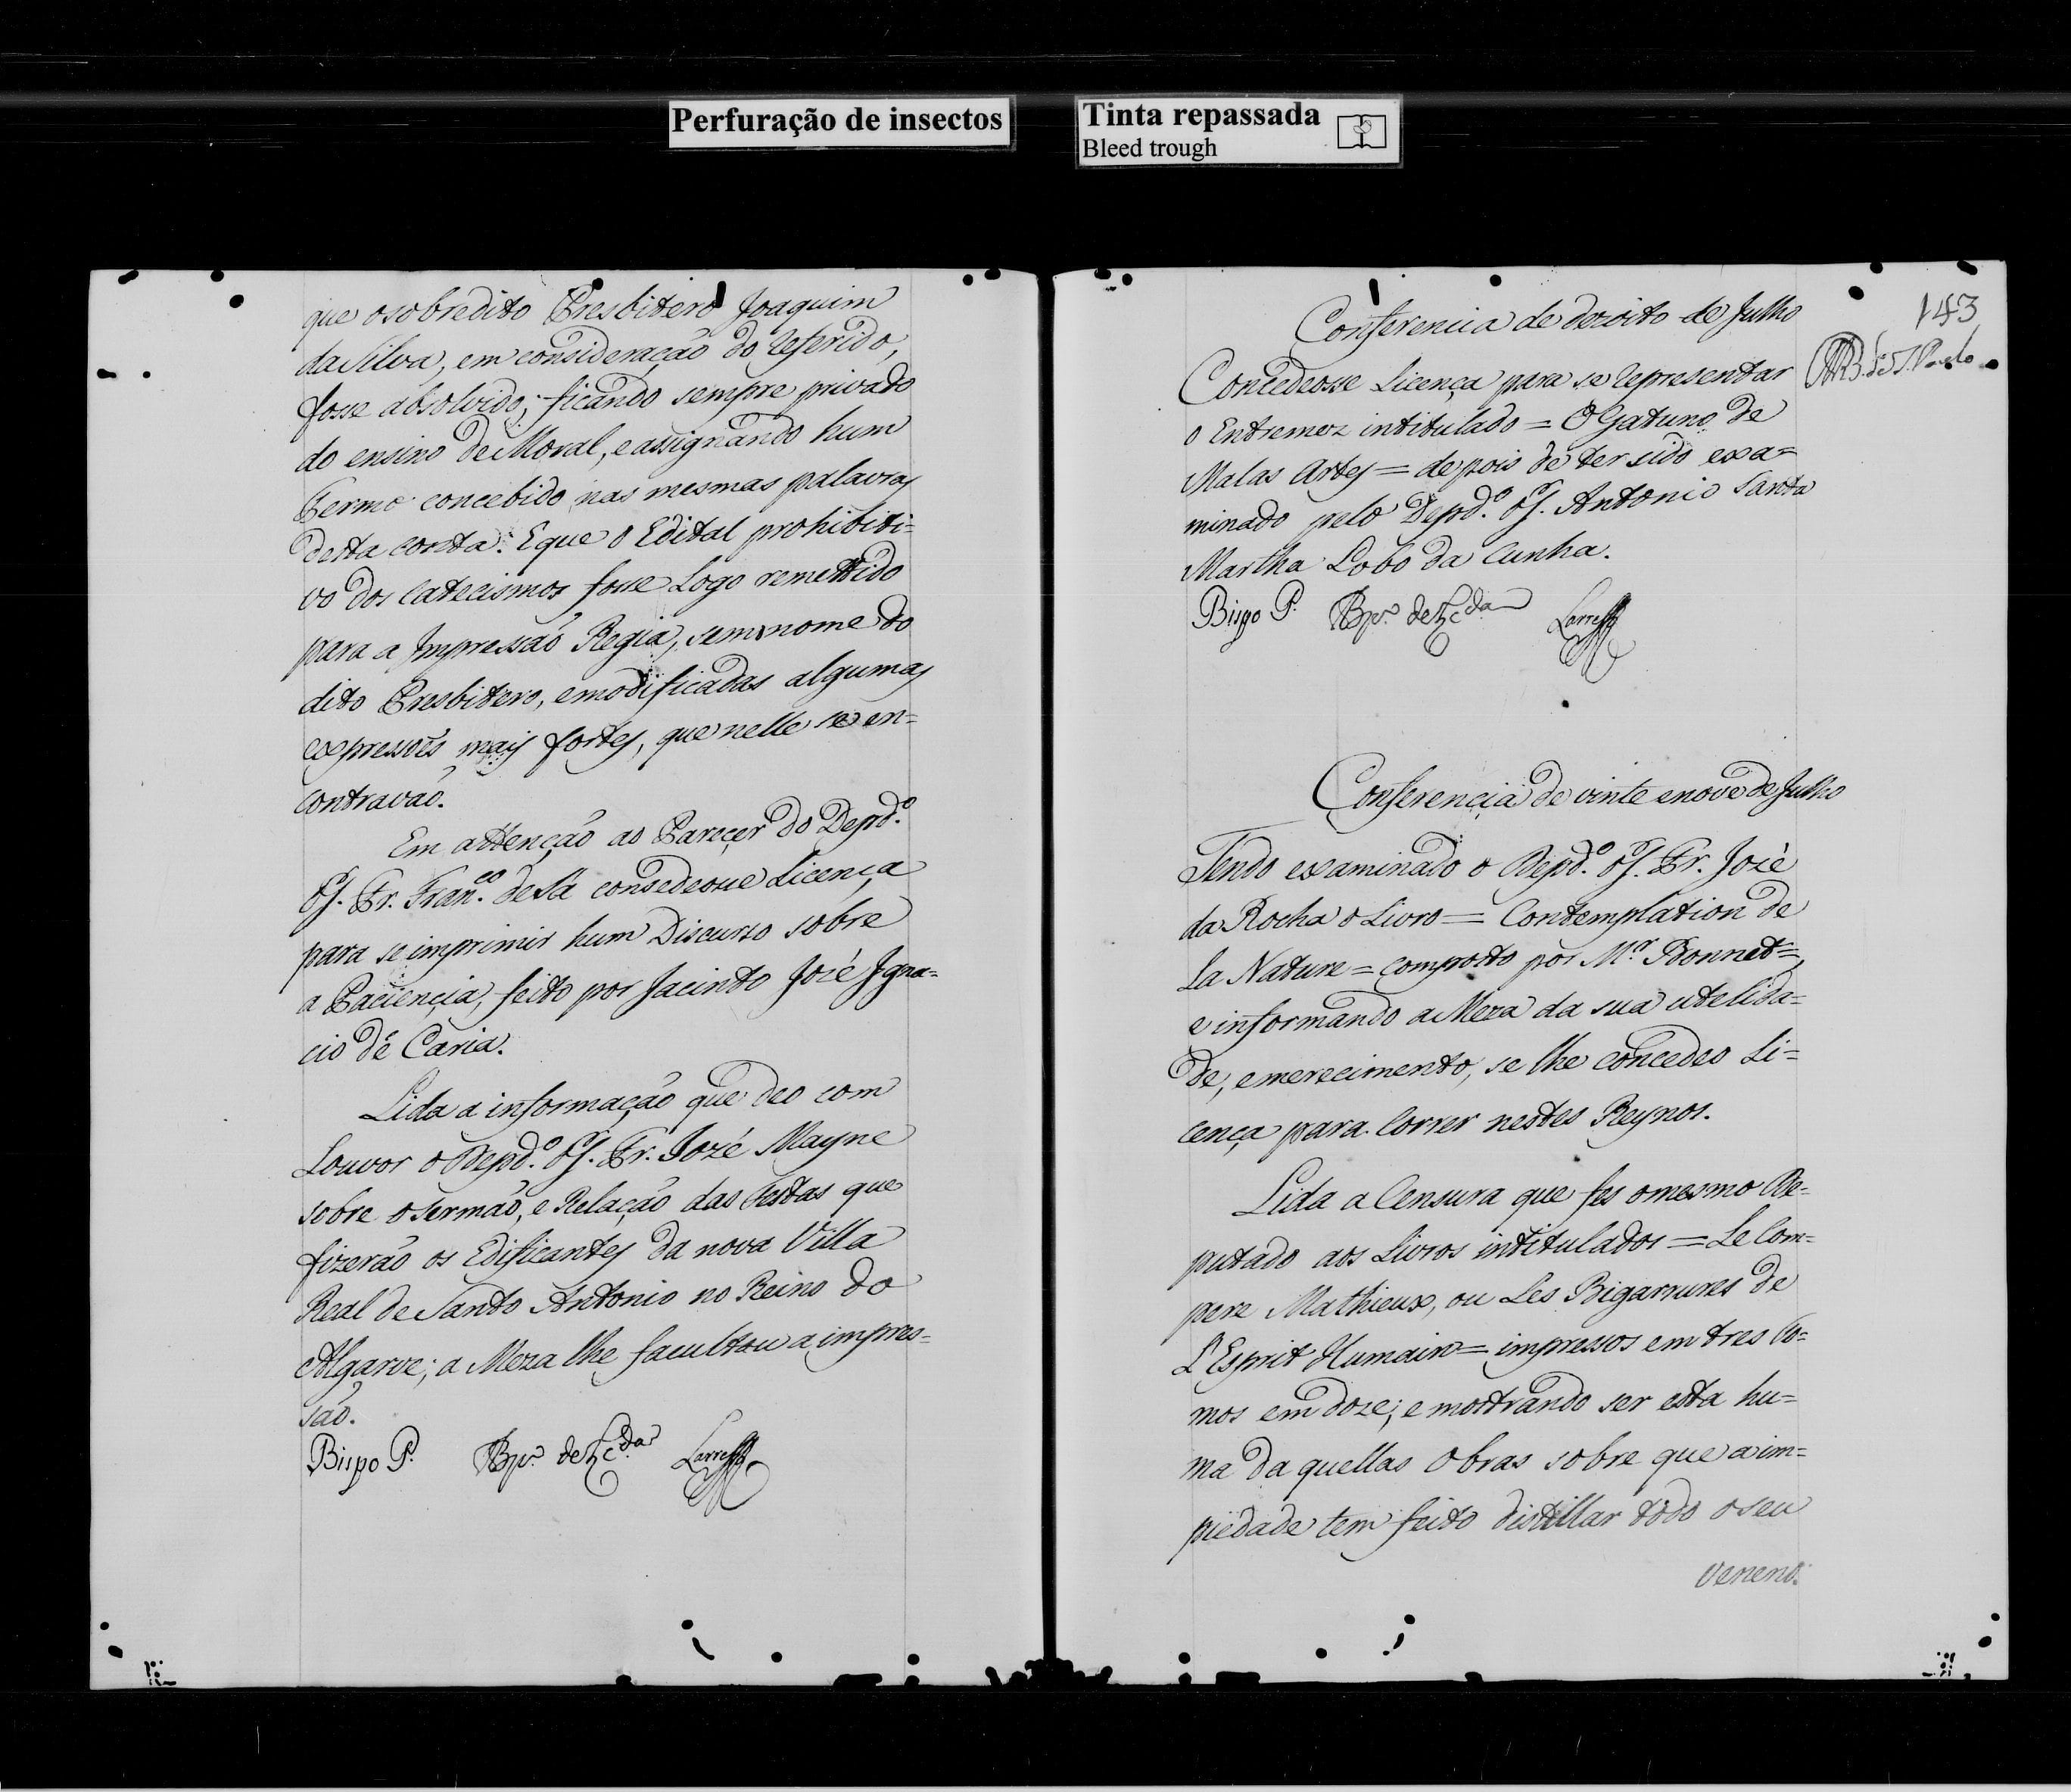 Perfuração de insectos
Tinta repassada
Bleed trough
que o sobredito Presbitero Joaquim
da Silva, em consideração do referido,
fosse absolvido; ficando sempre privado
do ensino de Moral, e assignando hum
Termo concebido nas mesmas palavras
desta conta: E que o Edital prohibiti=
vo dos Catecismos fosse Logo remettido
para a Impressaõ Regia, sem nome do
dito Presbitero, e modificadas algumas
expressoẽs mais fortes, que nelle se en=
contravaõ.
Em attençaõ ao Pareçer do Depd.º
Fr. Fran.co de Sá consedeose Licença
para se imprimir hum Discurso sobre
a Paciençia, feito por Jacinto José Igna=
cio de Caria.
Lida a informaçaõ que deo com
Louvor o Depd.º Fr. Jozé Mayne
sobre o sermaõ, e Relaçaõ das Festas que
fizeraõ os Edificantes da nova Villa
Real de Santo Antonio no Reino do
Algarve; a Meza lhe facultou a impres=
saõ.
Bispo P.
143
Conferencia de dezoito de Julho
Concedeosse Licença para se representar
o Entremez intitulado = O Gatuno de
Malas Artes = depois de ter sido exa=
minado pelo Depd.º Antonio Santa
Martha Lobo da Cunha.
Bispo P.
Conferençia de vinte e nove de Julho
Tendo examinado o Depd.º Fr. José
da Rocha o Livro = Contemplation de
la Nature = composto por M.r Bonnet =,
e informando a Meza da sua utelida=
de, e merecimento, se lhe concedeo Li=
cença para Correr nestes Reynos.
Lida a Censura que fes o mesmo De=
putado aos Livros intitulados = Le Com=
pere Mathieux, ou Les Bigarrures de
L'Esprit Humain = impressos em tres To=
mos em doze; e mostrando ser esta hu=
ma daquellas Obras sobre que a im=
piedade tem feito distillar todo o seu
veneno: